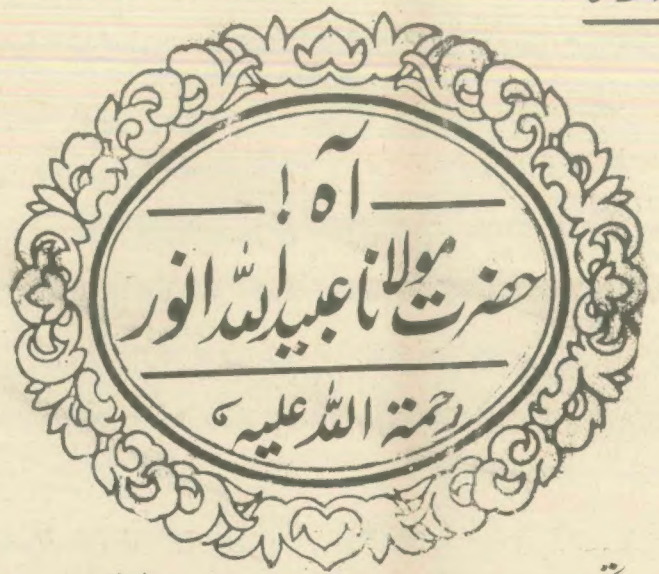 آہ!
حضرت مولانا عبیداللہ انور
رحمتہ اللہ علیہ